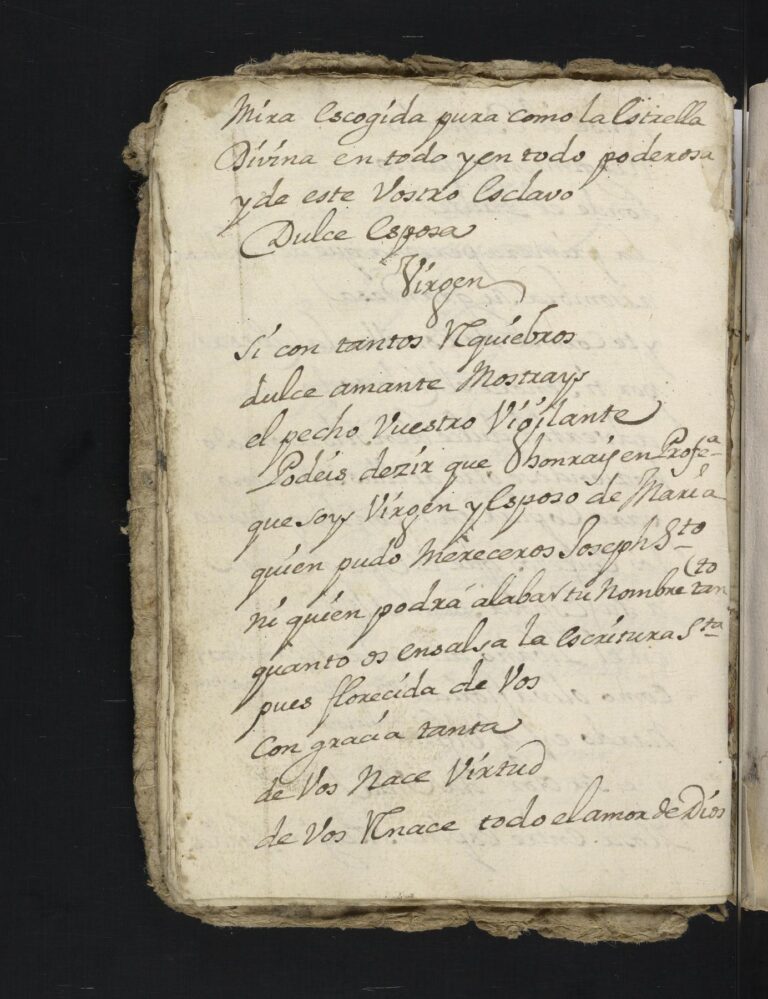 Mira Escogida pura como la Estrella
Divina en todo y en todo poderosa
y de este Vostro Esclavo
Dulce Esposa
Virgen
Si con tantos Rquiebros
dulce amante Mostrays
el pecho Vuestro Vigilante
Podeis dezir que honrais en Profe.ª
que soy Virgen y Esposo de Maria
quien pudo Mereceros Joseph Sto
ni quien podrá alabar tu Nombre tanto
quanto os ensalsa la Escritura Sta
pues florecida de Vos
Con gracia tanta
de Vos Nace Virtud
de Vos Rnace todo el amor de Dios